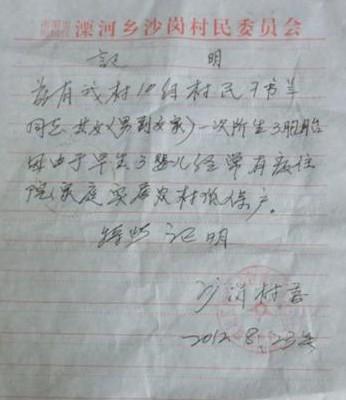 溧河乡沙岗村民委员会
证 明
兹有我村10组村民
同志其女(男到女家)一次所生3胞胎
由于早生3婴儿经常有病住
院家庭实属农村低保户。
特此证明
沙岗村委
2012.8.23